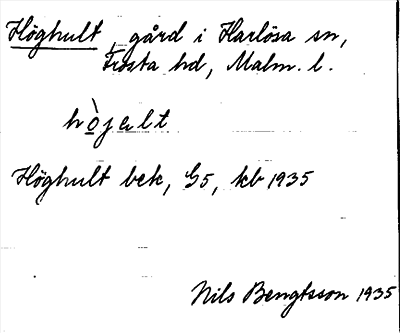 Höghult, gård i Harlösa sn,
Frosta hd, Malm. l.
hòjalt
Höghult bek, G5, kb 1935
Nils Bengtsson 1935